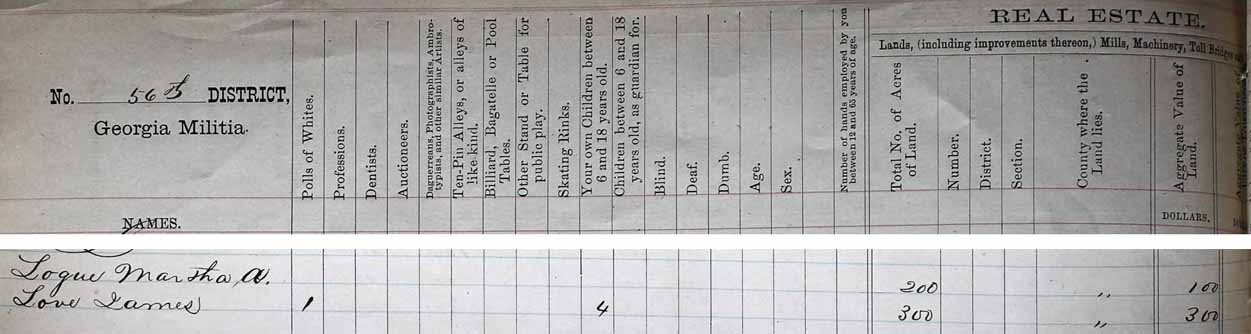 No. 56th DISTRICT,
Georgia Militia.
NAMES.
Polls of Whites.
Professions.
Dentists.
Auctioneers.
Daguerreans, Photographists, Ambro-
typists, and other similar Artists.
Ten-Pin Alleys, or alleys of
like kind.
Billiard, Bagatelle or Pool
Tables.
Other Stand or Table for
public play.
Skating Rinks.
Your own Children between
6 and 18 years old.
Children between 6 and 18
years old, as guardian for.
Blind.
Deaf.
Dumb.
Age.
Sex.
Number of hands employed by you
between 12 and 65 years of age.
REAL ESTATE.
Lands, (including improvements thereon,) Mills, Machinery, Toll Bridges
Total No. of Acres
of Land.
Number.
District.
Section.
County where the
Land lies.
Aggregate Value of
Land.
DOLLARS.
Logue Martha A. 200 " 100
Love James 1 4 300 " 300